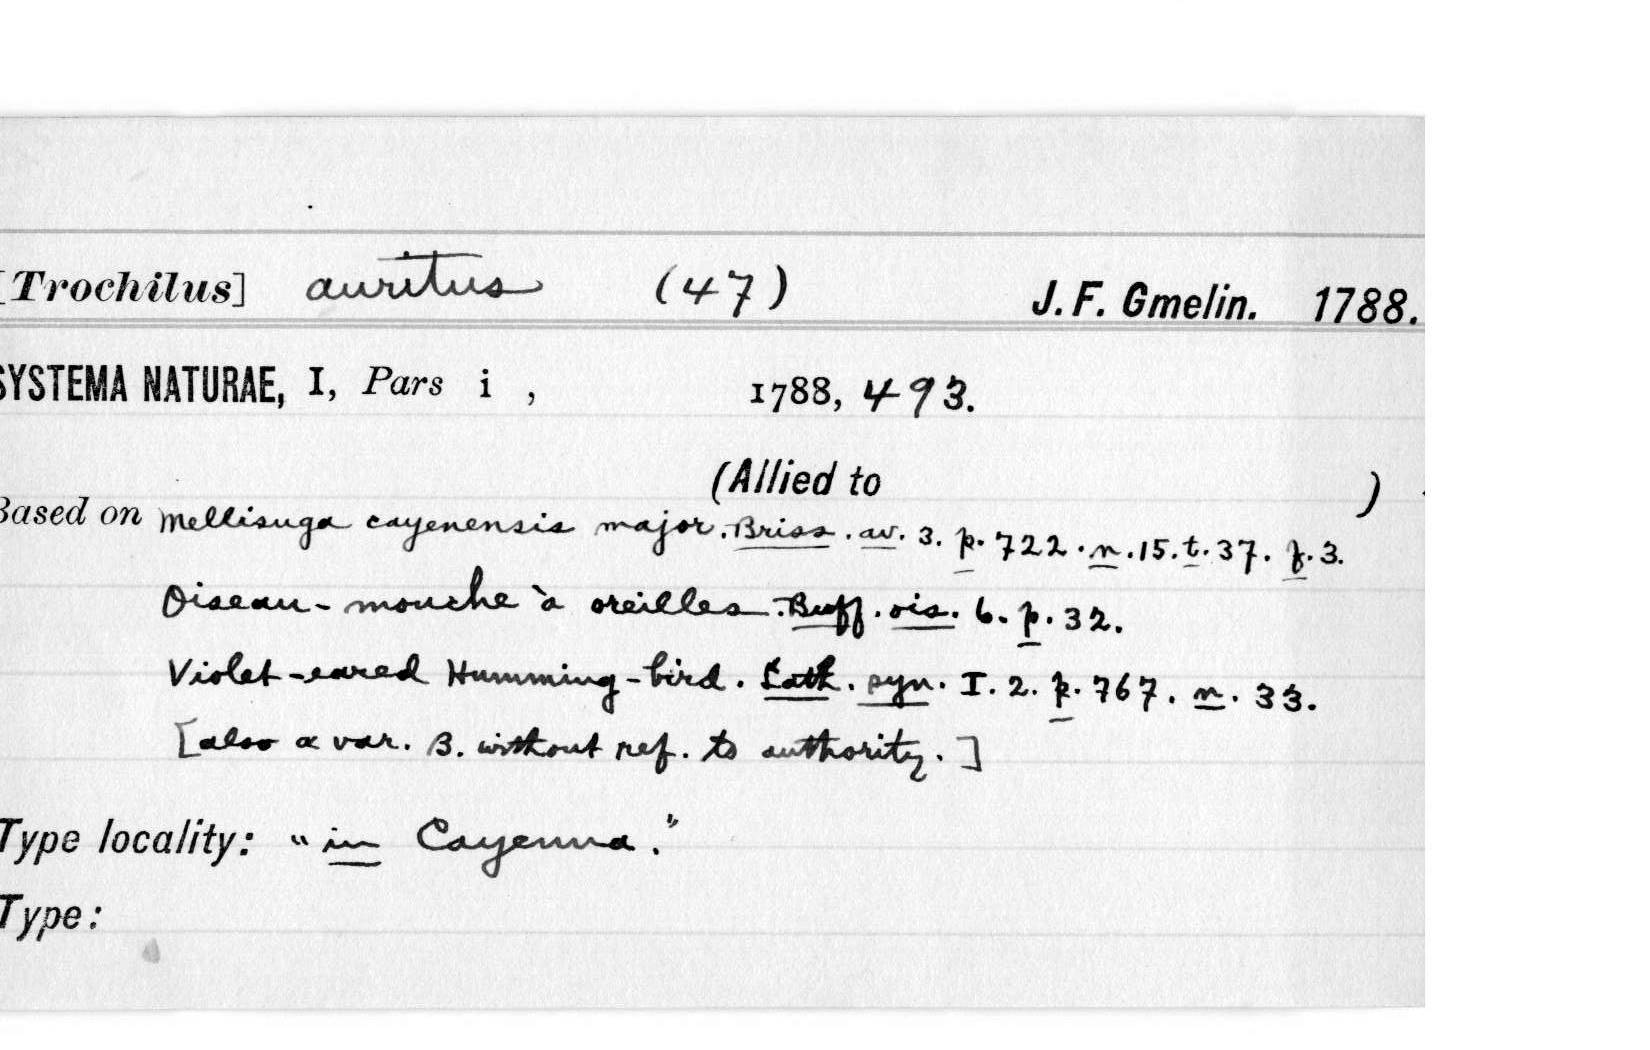 [Trochilus] auritus (47) J. F. Gmelin. 1788.
SYSTEMA NATURAE, I, Pars i , 1788, 493.
(Allied to )
Based on Mellisuga cayenensis major. Briss. av. 3. p. 722. n. 15. t. 37. f. 3.
Oiseau-mouche à oreilles. Buff. ois. 6. p. 32.
Violet-eared Humming-bird. Lath. syn. I. 2. p. 767. n. 33.
[also a var. B. without ref. to authority.]
Type locality: "in Cayenna."
Type: